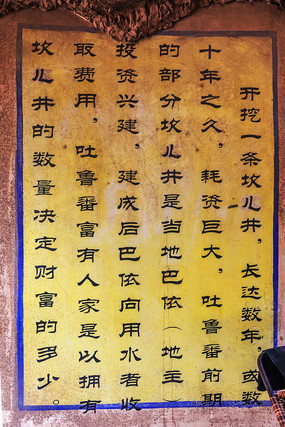 开挖一条坎儿井，长达数年或数
十年之久，耗资巨大，吐鲁番前期
的部分坎儿井是当地巴依（地主）
投资兴建，建成后巴依向用水者收
取费用，吐鲁番富有人家是以拥有
坎儿井的数量决定财富的多少。